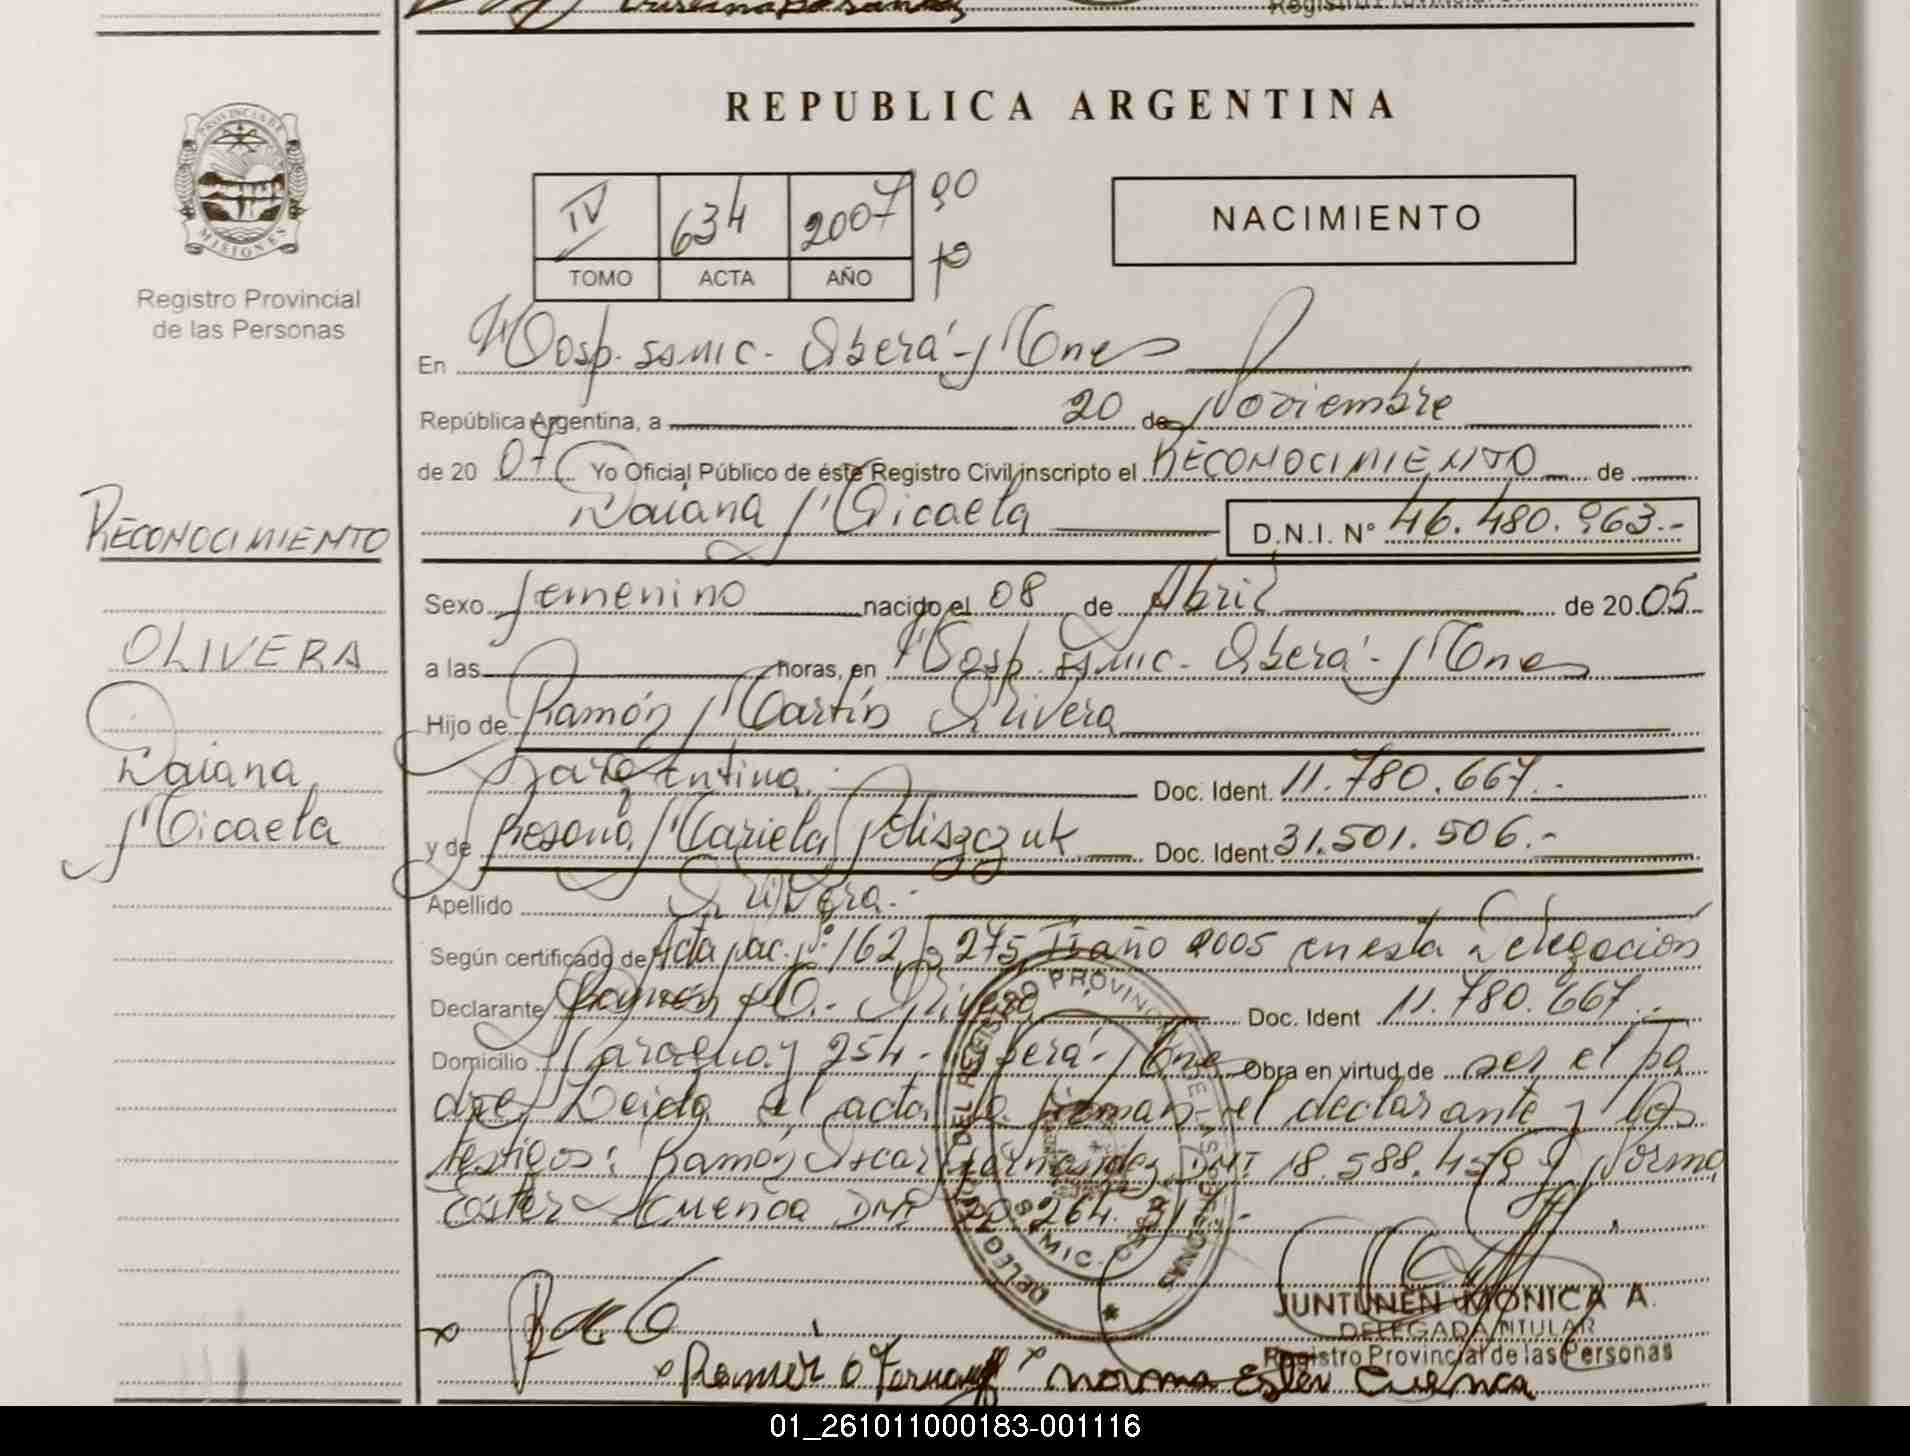 REPUBLICA ARGENTINA
PROVINCIA DE
MISIONES
Registro Provincial
de las Personas
IV 634 2007
TOMO ACTA AÑO
NACIMIENTO
En Hosp. samic. Oberá - Mnes
República Argentina, a 20 de Noviembre
de 20 07 Yo Oficial Público de éste Registro Civil inscripto el RECONOCIMIENTO de
Daiana Micaela D.N.I. N° 46.480.963.-
RECONOCIMIENTO
OLIVERA
Daiana
Micaela
Sexo femenino nacido el 08 de Abril de 20.05
a las horas, en Hosp. samic. Oberá - Mnes
Hijo de Ramón Martín Olivera
argentina. Doc. Ident. 11.780.667.-
y de Rosana Mariela Poliszczuk Doc. Ident. 31.501.506.-
Apellido Olivera.-
Según certificado de Acta nac. Nº 162 275 II año 2005 en esta Delegación
Declarante Ramón M.- Olivera Doc. Ident 11.780.667.-
Domicilio Paraguay 254.- Oberá - Mnes Obra en virtud de ser el pa
dre. Leida el acta la firman el declarante y los
testigos: Ramón Oscar Fernandez DNI 18.588.459 y Norma
Ester Cuenca DNI 20.264.317.-
DELEGACION DEL REGISTRO PROVINCIAL DE LAS PERSONAS
SAMIC - OBERA
JUNTUNEN MONICA A.
DELEGADA TITULAR
Registro Provincial de las Personas
Ramon O Fernandez Norma Ester Cuenca
01_261011000183-001116